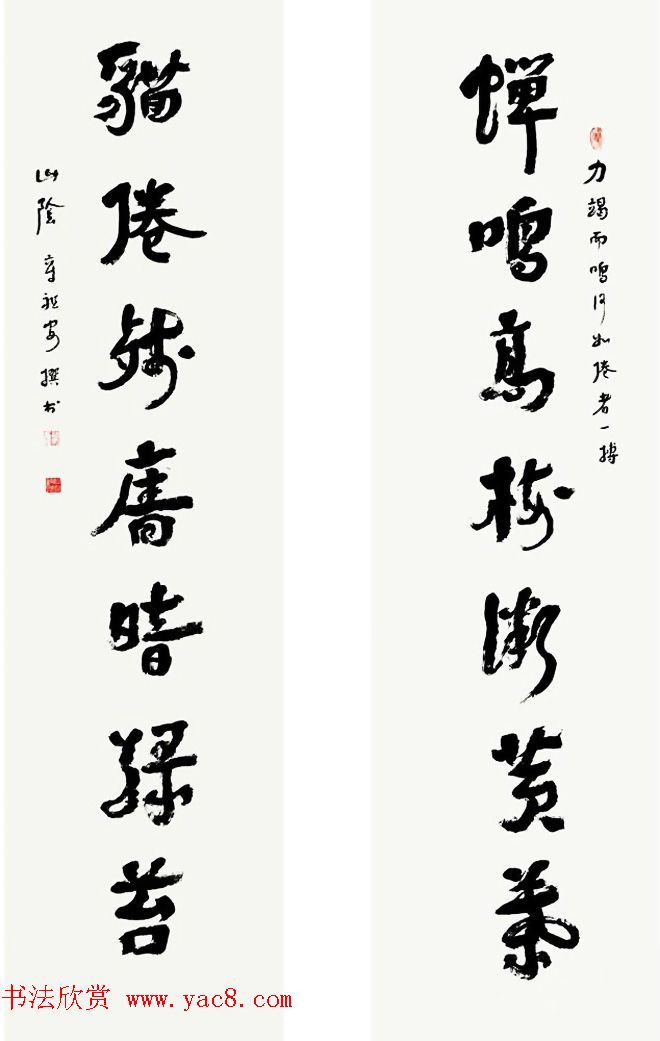 力竭而鳴何如倦者一搏
蟬鳴高樹漸黃葉
貓倦殘廧暗綠苔
山陰 章祖安 撰书
书法欣赏 www.yac8.com